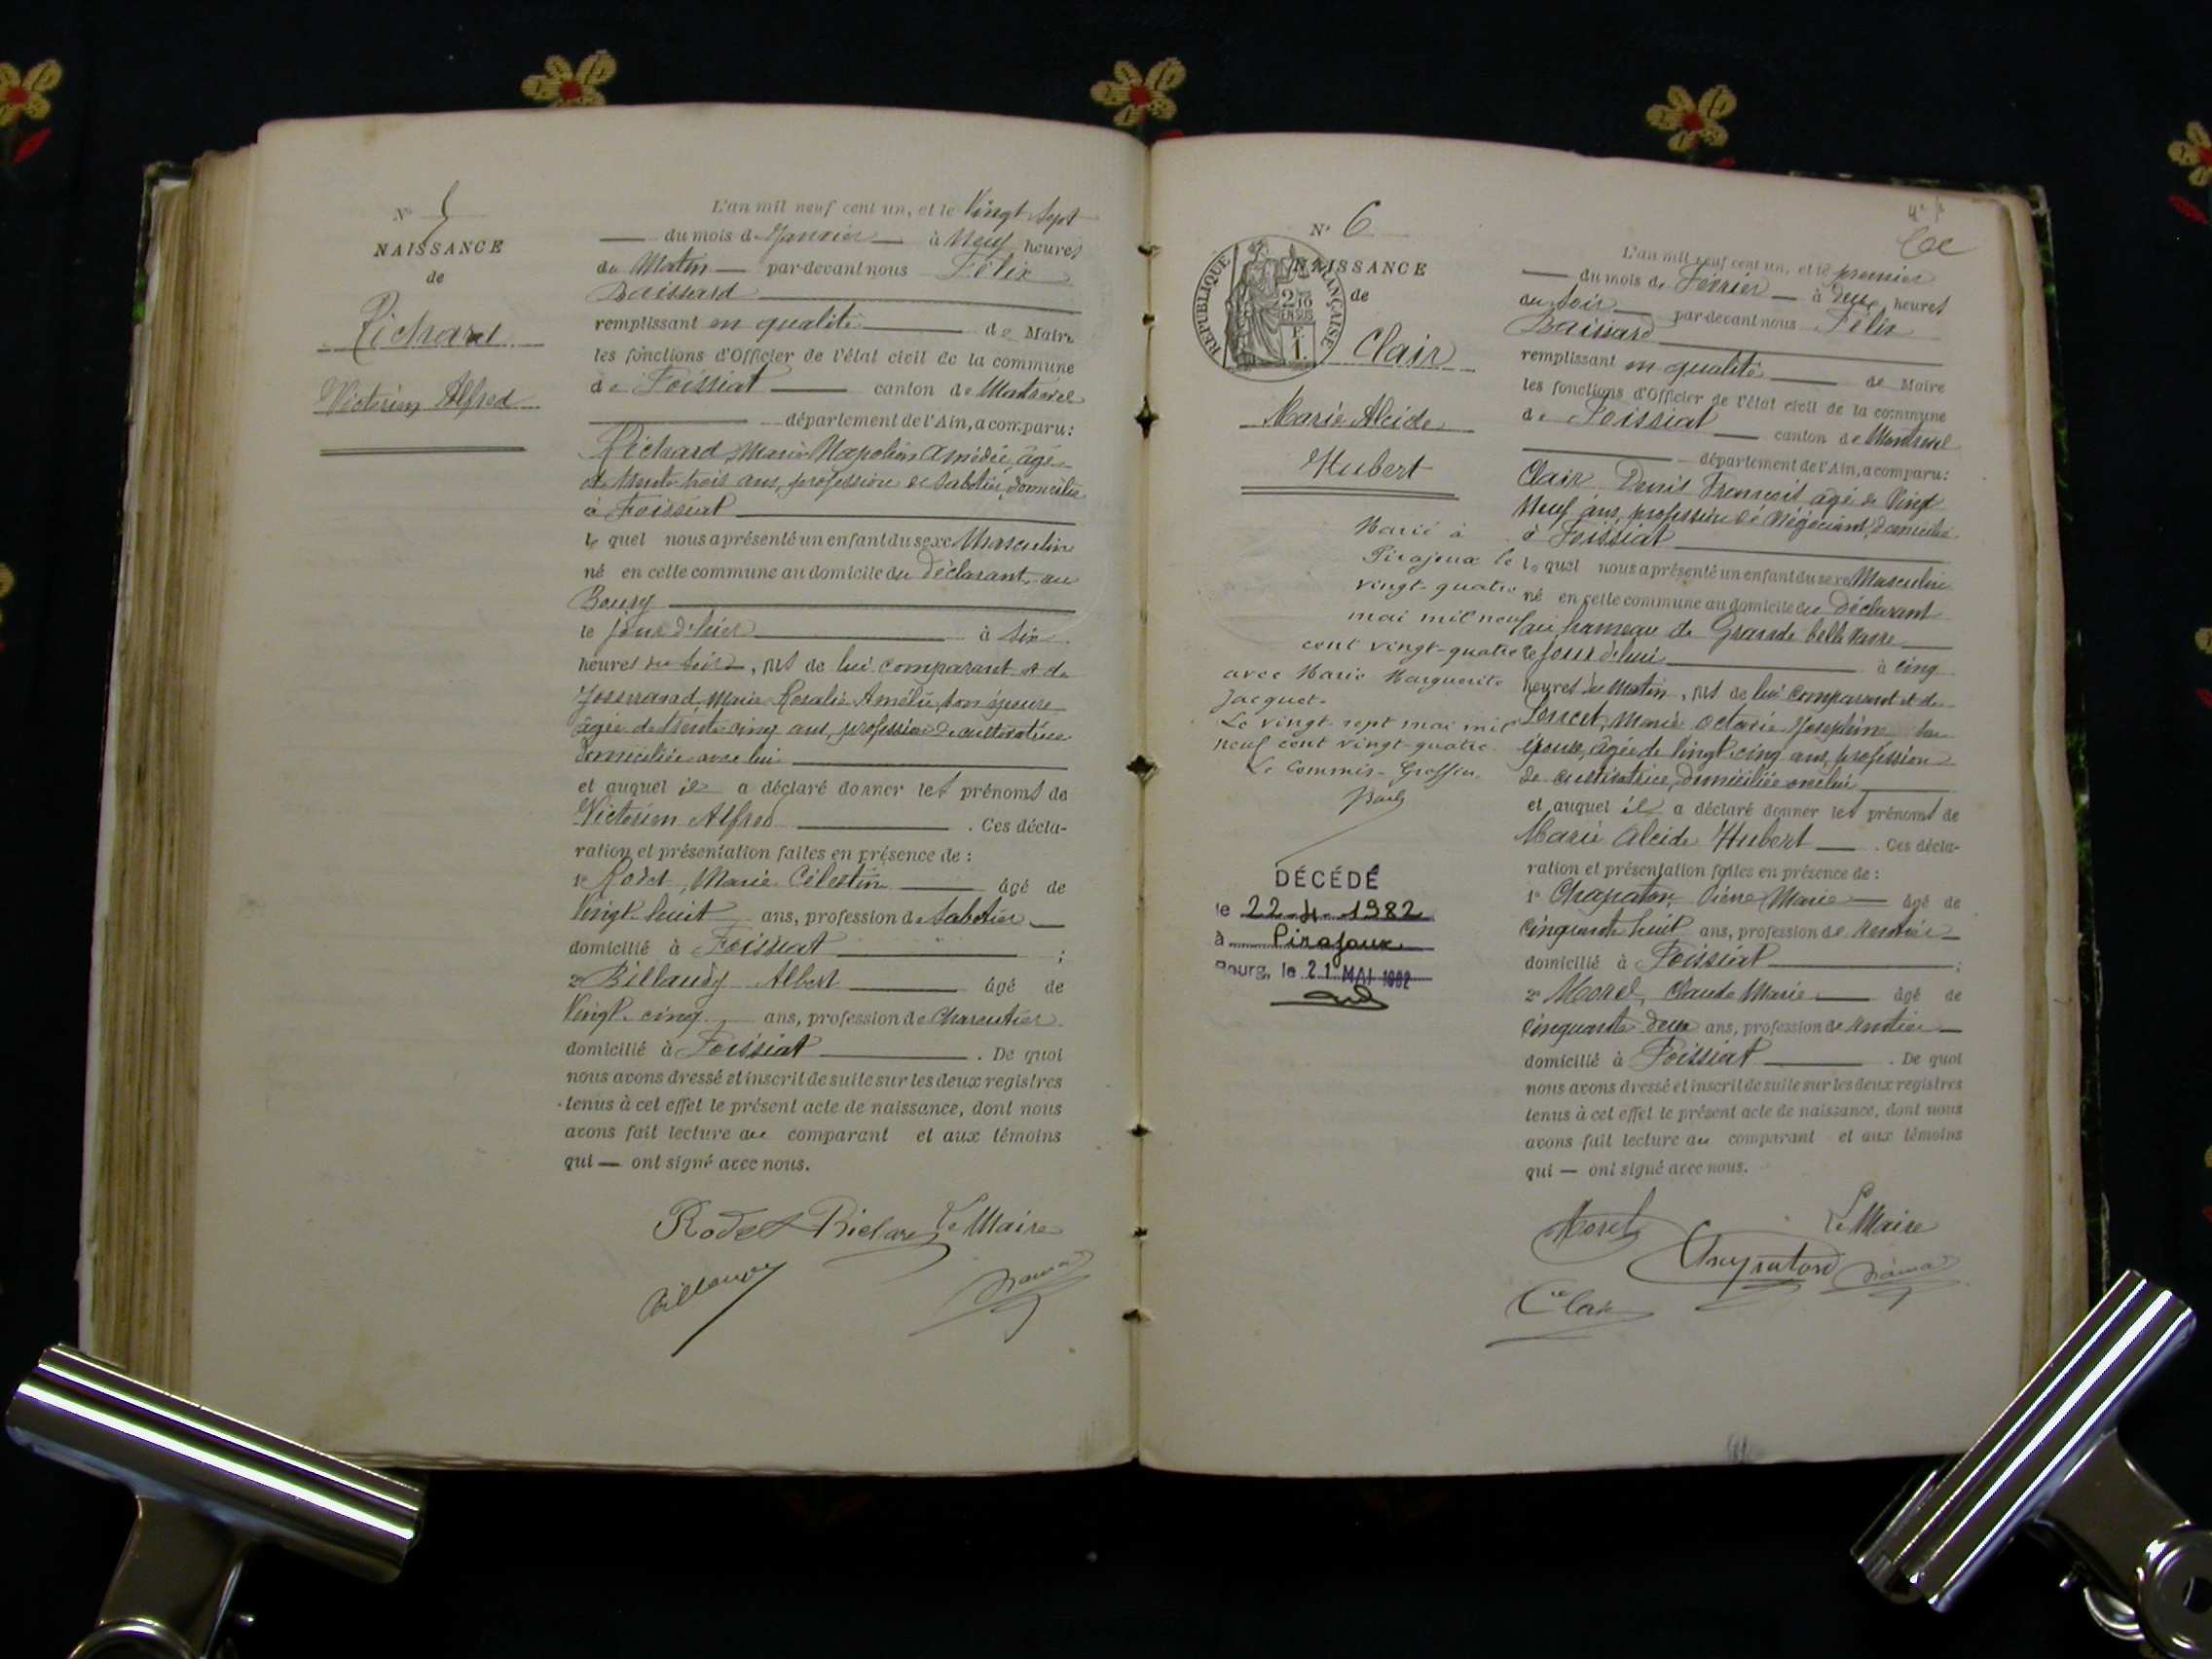 N° 5
NAISSANCE
de
Richard
Victorien Alfred
L'an mil neuf cent un, et le Vingt sept
du mois de Janvier à Neuf heures
du Matin par-devant nous Félix
remplissant en qualité de Maire
les fonctions d'Officier de l'état civil de la commune
de Foissiat canton de Montrevel
département de l'Ain, a comparu :
Richard, Marie Napoléon Amédée, âgé
de trente trois ans, profession de Sabotier, domicilié
à Foissiat
le quel nous a présenté un enfant du sexe Masculin
né en cette commune au domicile du déclarant, au
Bourg
le jour d'hier à six
heures du soir, fils de lui comparant et de
Josserand, Marie Rosalie Amélie, son épouse
âgée de trente cinq ans, profession de cultivatrice
domiciliée avec lui
et auquel il a déclaré donner les prénoms de
Victorien Alfred . Ces décla-
ration et présentation faites en présence de :
1° Rodet, Marie Célestin âgé de
Vingt huit ans, profession de Sabotier
domicilié à Foissiat ;
2° Billaudy Albert âgé de
Vingt cinq ans, profession de Charcutier
domicilié à Foissiat . De quoi
nous avons dressé et inscrit de suite sur les deux registres
tenus à cet effet le présent acte de naissance, dont nous
avons fait lecture au comparant et aux témoins
qui — ont signé avec nous.
Rodet Richard Le Maire
N° 6
NAISSANCE
de
RÉPUBLIQUE FRANÇAISE
Clair
Marie Alcide
Hubert
Marié à
Pirajoux le
vingt-quatre
mai mil neuf
cent vingt-quatre
avec Marie Marguerite
Jacquet.
Le vingt sept mai mil
neuf cent vingt-quatre.
Le Commis-Greffier
DÉCÉDÉ
le 22-4-1982
à Pirajoux
Bourg, le 21 MAI 1982
L'an mil neuf cent un, et le premier
du mois de Février à deux heures
du soir par-devant nous Félix
remplissant en qualité de Maire
les fonctions d'Officier de l'état civil de la commune
de Foissiat canton de Montrevel
département de l'Ain, a comparu :
Clair Denis François âgé de Vingt
Neuf ans, profession de Négociant, domicilié
à Foissiat
le quel nous a présenté un enfant du sexe Masculin
né en cette commune au domicile du Déclarant
au hameau de Grande
le jour d'hui à cinq
heures du Matin, fils de lui comparant et de
Marie Octavie Joséphine sa
épouse, âgée de Vingt cinq ans, profession
de cultivatrice, domiciliée avec lui
et auquel il a déclaré donner les prénoms de
Marie Alcide Hubert . Ces décla-
ration et présentation faites en présence de :
1° Chapaton, Pierre Marie âgé de
Cinquante huit ans, profession de Rentier
domicilié à Foissiat ;
2° Morel, Claude Marie âgé de
Cinquante deux ans, profession de rentier
domicilié à Foissiat . De quoi
nous avons dressé et inscrit de suite sur les deux registres
tenus à cet effet le présent acte de naissance, dont nous
avons fait lecture au comparant et aux témoins
qui — ont signé avec nous.
Morel Le Maire
Clair